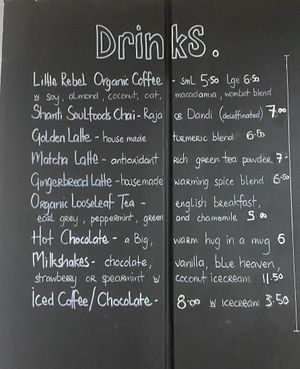 Drinks.
Little Rebel Organic Coffee - SML 5.50 Lge 6.50
w soy, almond, coconut, oat, macadamia, wombat blend
Shanti Soulfoods Chai - Raja OR Dandi (decaffinated) 7.00
Golden Latte - house made turmeric blend 6.50
Matcha Latte - antioxidant rich green tea powder 7.
Gingerbread Latte - housemade warming spice blend 6.50
Organic Looseleaf Tea - english breakfast,
earl grey, peppermint, green and chamomile 5.00
Hot Chocolate - a Big, warm hug in a mug 6
Milkshakes - chocolate, vanilla, blue heaven,
strawberry OR spearmint w coconut icecream 11.50
iced Coffee/Chocolate - 8.00 w icecream 3.50